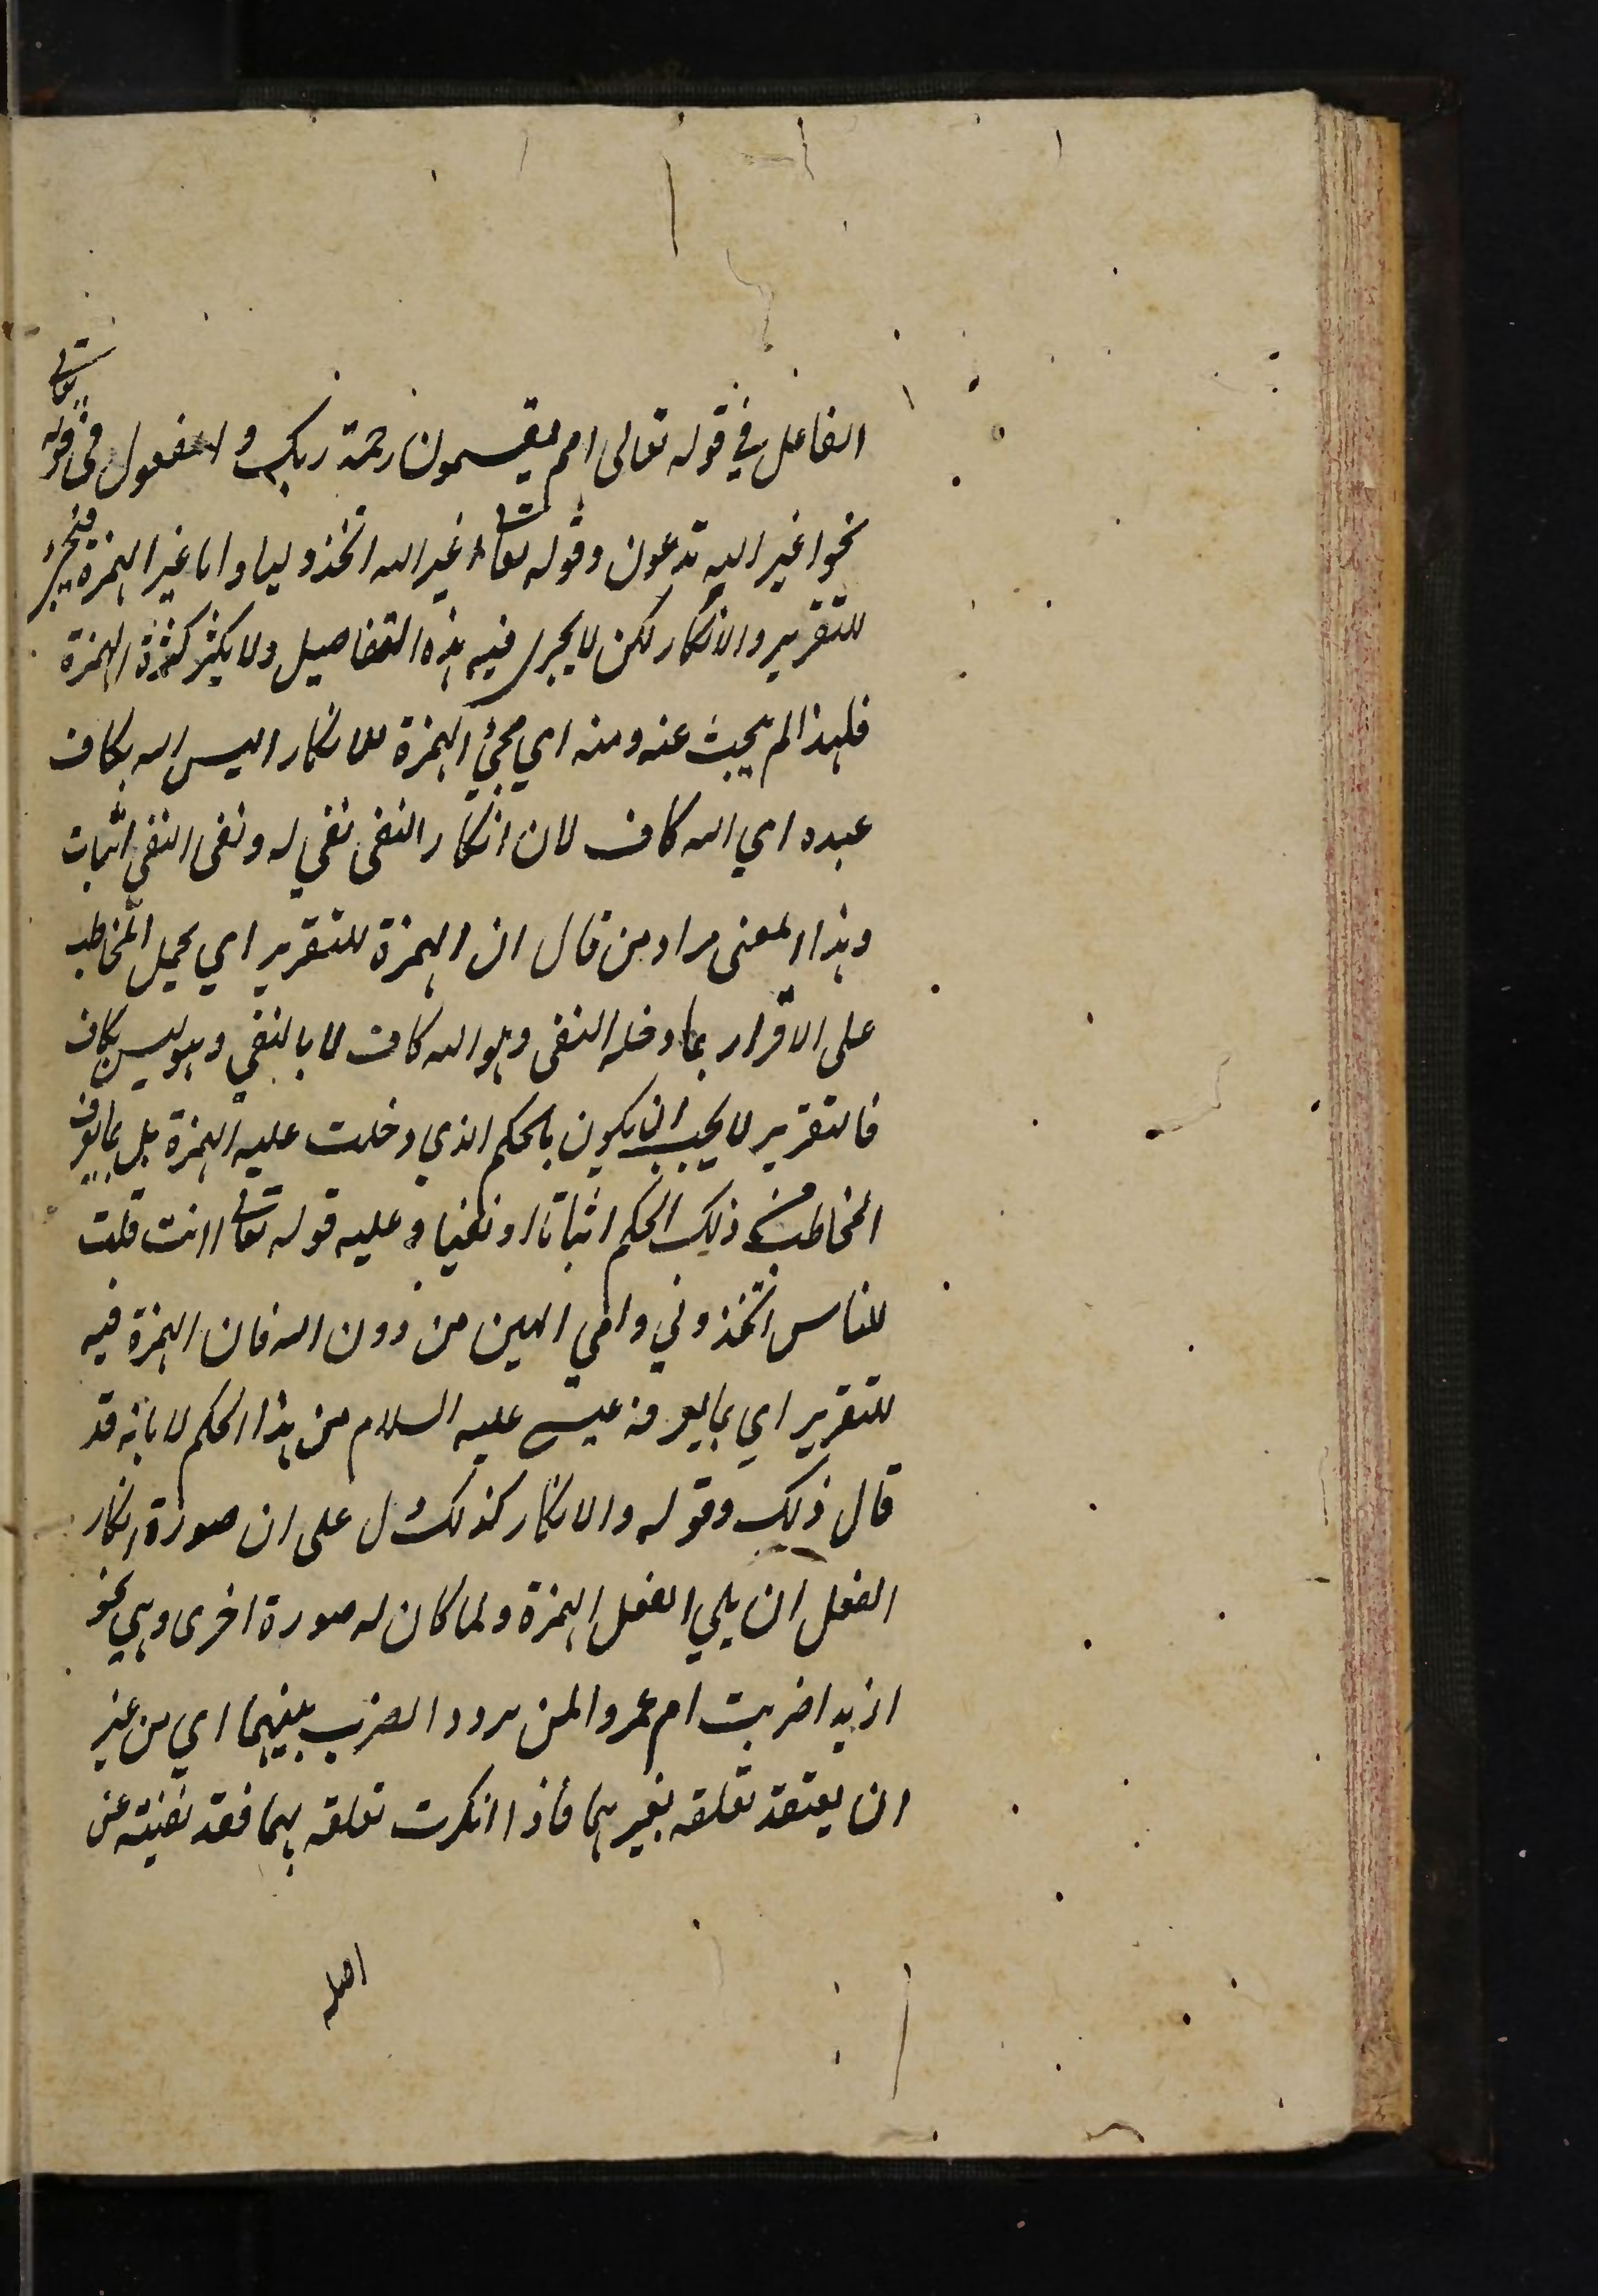 الفاعل في قوله تعالى اهم يقسمون رحمة ربك والمفعول في قوله تعالى
نحو اغير الله تدعون وقوله تعالى اغير الله اتخذ وليا واما غير الهمزة فيجيء
للتقرير والانكار لكن لا يجرى فيه هذه التفاصيل ولا يكثر كثرة الهمزة
فلهذا لم يبحث عنه ومنه اي مجيء الهمزة للانكار اليس الله بكاف
عبده اي الله كاف لان انكار النفى نفي له ونفى النفي اثبات
وهذا المعنى مراد من قال ان الهمزة للتقرير اي بحمل المخاطب
على الاقرار بما دخله النفى وهو الله كاف لا بالنفي وهو ليس بكاف
فالتقرير لا يجب ان يكون بالحكم الذي دخلت عليه الهمزة بل بما يعرف
المخاطب من ذلك الحكم اثباتا او نفيا وعليه قوله تعالى اانت قلت
للناس اتخذوني وامي الهين من دون الله فان الهمزة فيه
للتقرير اي بما يعرفه عيسى عليه السلام من هذا الحكم لا بانه قد
قال ذلك وقوله والانكار كذلك دل على ان صورة انكار
الفعل ان يلي الفعل الهمزة ولما كان له صورة اخرى وهي نحو
ازيدا ضربت ام عمروا لمن يردد الضرب بينهما اي من غير
ان يعتقد تعلقه بغيرهما فاذا انكرت تعلقه بهما فقد نفيته عن
اصله